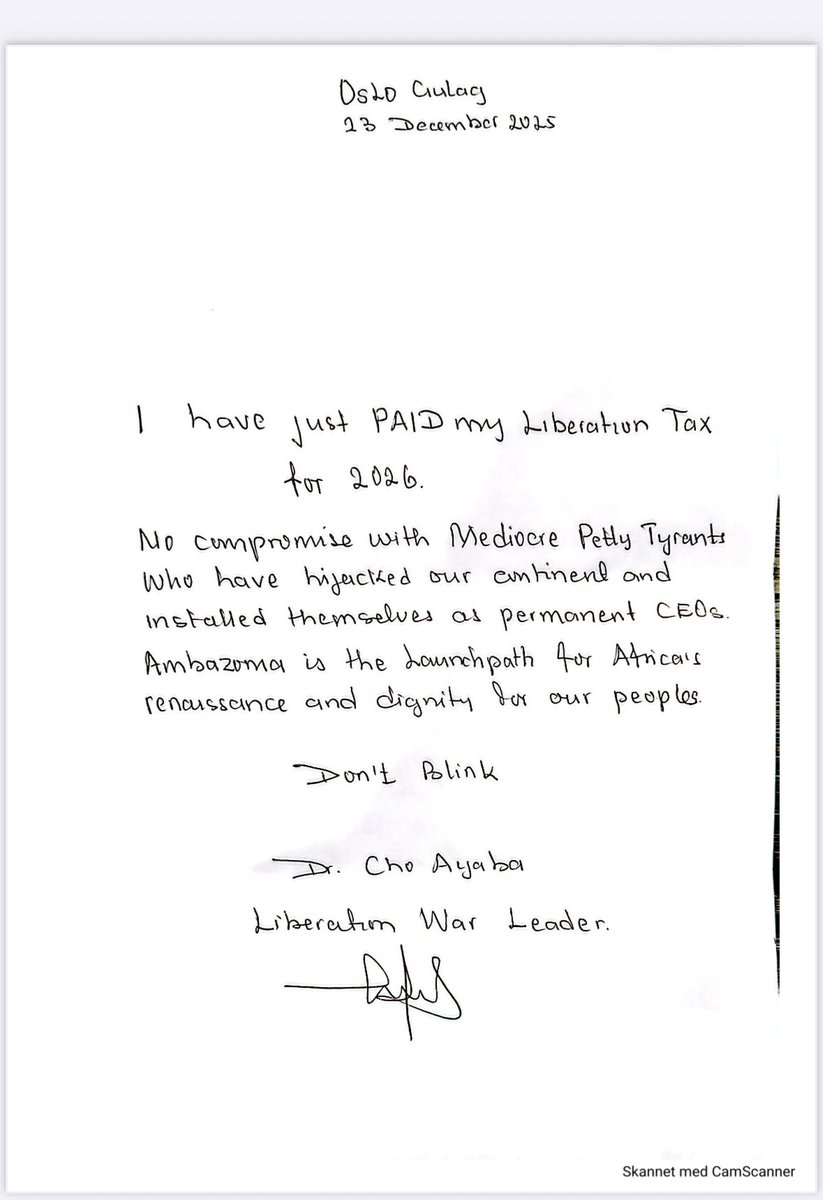 Oslo Gulag
23 December 2025
I have just PAID my Liberation Tax
for 2026.
No compromise with Mediocre Petty Tyrants
who have hijacked our continent and
installed themselves as permanent CEOs.
Ambazonia is the Launchpath for Africa's
renaissance and dignity for our peoples.
Don't Blink
Dr. Cho Ayaba
Liberation War Leader.
Skannet med CamScanner